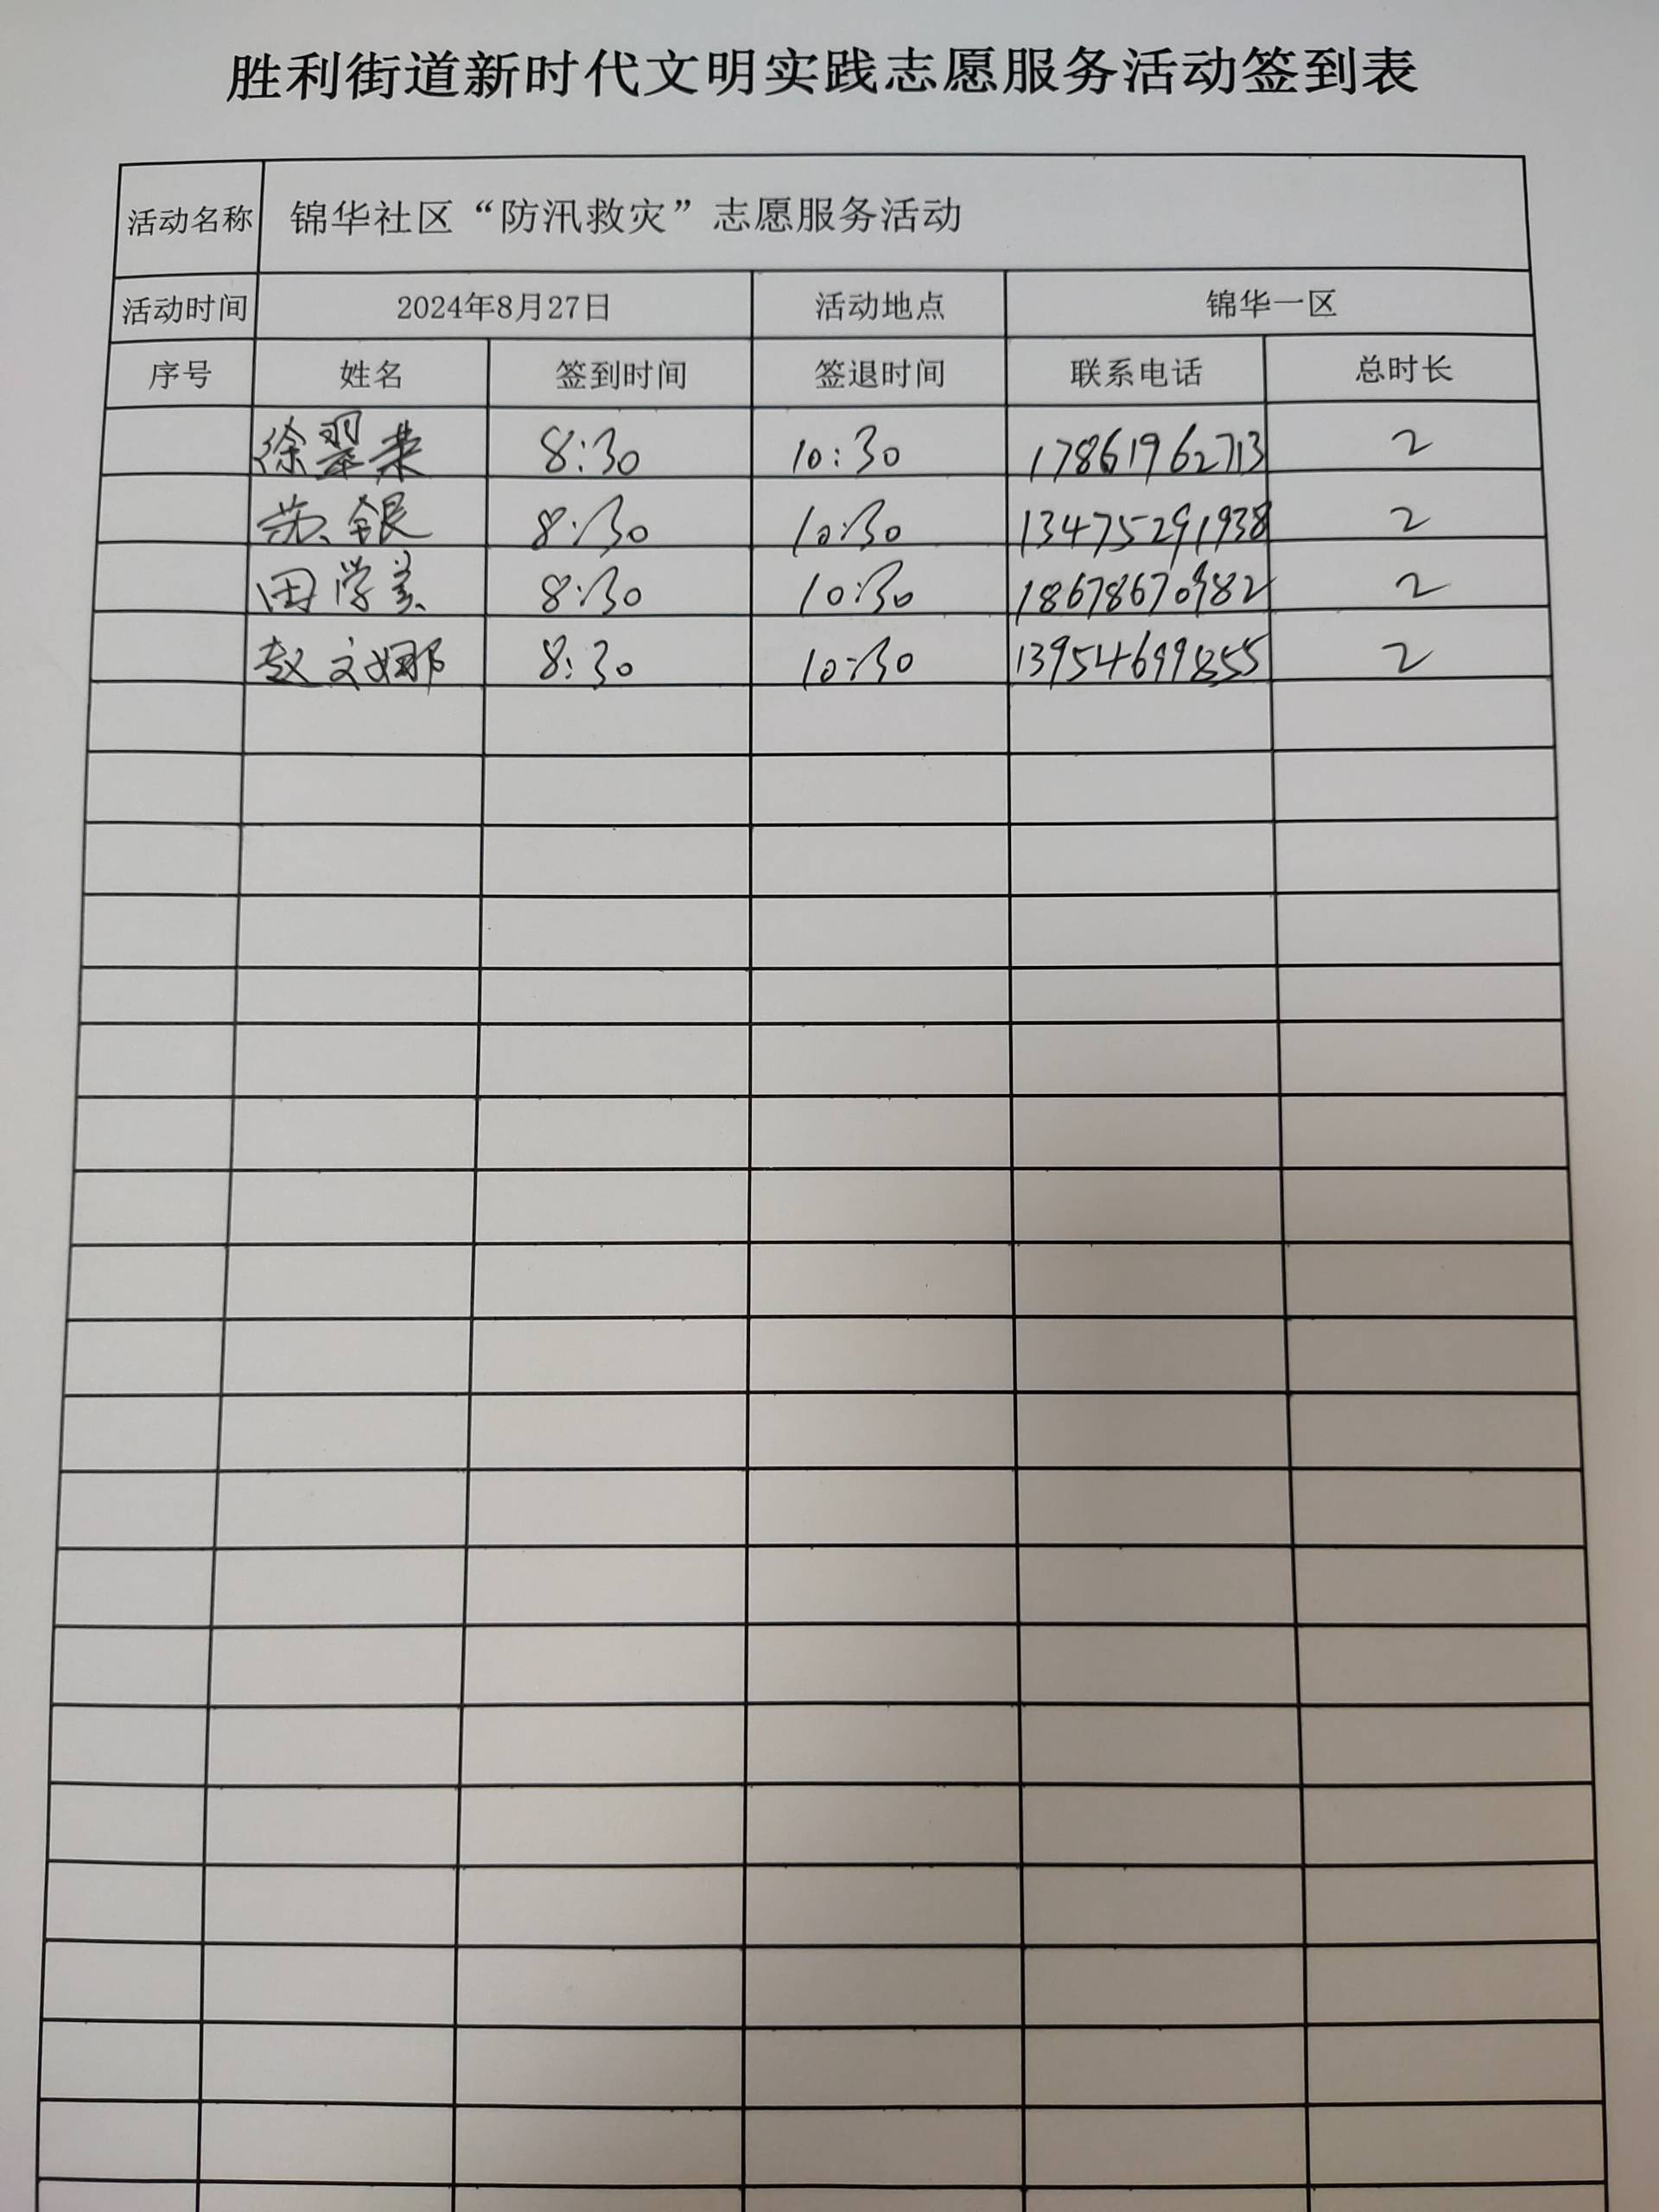 胜利街道新时代文明实践志愿服务活动签到表
活动名称 锦华社区“防汛救灾”志愿服务活动
活动时间 2024年8月27日 活动地点 锦华一区
序号 姓名 签到时间 签退时间 联系电话 总时长
徐翠荣 8:30 10:30 17861962713 2
苏银 8:30 10:30 13475291938 2
田学美 8:30 10:30 18678670982 2
赵文娜 8:30 10:30 13954699855 2